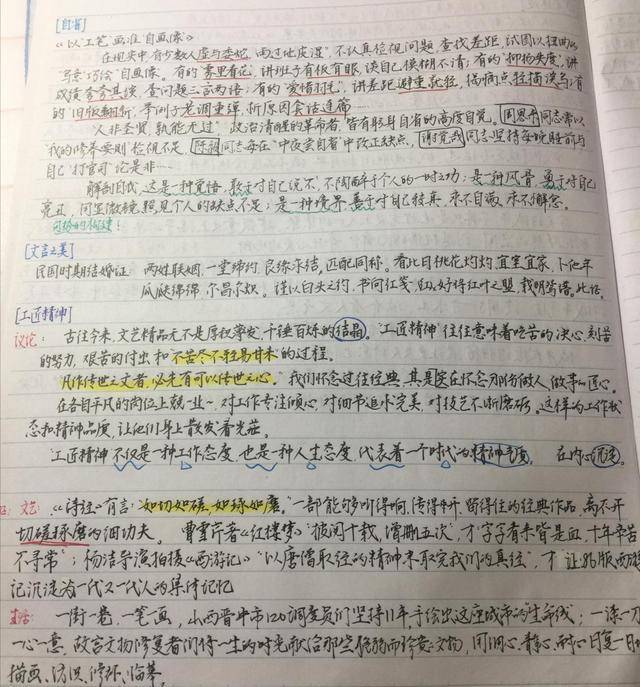 [自省]
《以"工笔"画准"自画像"》
在现实中,有少数人虚与委蛇,"雨过地皮湿",不认真检视问题,查找差距,试图以扭曲的
"写意"巧绘"自画像"。有的"雾里看花",讲班子有板有眼,谈自己模糊不清;有的"抑扬失度",讲
成绩夸夸其谈,查问题三言两语;有的"爱惜羽毛",讲差距避重就轻,揭病点轻描淡写;有
的"旧版翻新",举例子老调重弹,析原因套话连篇……
"人非圣贤,孰能无过",政治清醒的革命者,皆有躬身自省的高度自觉。周恩来同志常以
"我的修养要则"检视不足,陈毅同志每在"中夜尝自省"中改正缺点,谢觉哉同志坚持每晚睡前与
自己"打官司"论是非…
解剖自我,这是一种觉悟,敢于对自己说不,不陶醉于个人的一时之功;是一种风骨,勇于对自己
亮丑,同显微镜照见个人的缺点不足;是一种境界,善于对自己较真,永不自满,永不懈怠。
[文言之美]
民国时期结婚证:两姓联姻,一堂缔约,良缘永结,匹配同称。看此日桃花灼灼,宜室宜家,卜他年
瓜瓞绵绵,尔昌尔炽。谨以白头之约,书向红笺,好将红叶之盟,载明鸳谱。此证。
[工匠精神]
议论:古往今来,文艺精品无不是厚积薄发,千锤百炼的结晶。"工匠精神"往往意味着吃苦的决心,刻苦
的努力,艰苦的付出和不苦尽不轻易甘来的过程。
"凡作传世之文者,必先有可以传世之心。"我们怀念过往经典,其实是在怀念那份做人,做事的匠心。
在各自平凡的岗位上兢兢业业,对工作专注倾心,对细节追求完美,对技艺不断磨砺。这样的工作状
态和精神品质,让他们身上散发着光芒。
"工匠精神"不仅是一种工作态度,也是一种人生态度,代表着一个时代的精神气质。在内心沉淀。
文艺:《诗经》有言:"如切如磋,如琢如磨。"一部能够叫得响,传得开,留得住的经典作品,离不开
切磋琢磨的细功夫。曹雪芹者《红楼梦》"披阅十载,增删五次",才"字字看来皆是血,十年辛苦
不寻常";杨洁导演拍摄《西游记》"以唐僧取经的精神来取完我们的真经",才让86版西游
记沉淀为一代又一代人的集体记忆
生活:一街一巷,一笔一画,山西晋中市120调度员们坚持11年手绘出这座城市的生命线;一漆一刀
一心一意,故宫文物修复者们将一生的时光献给那些脆弱而珍贵的文物,用细心、静心、耐心日复一日
描画、修补、临摹。